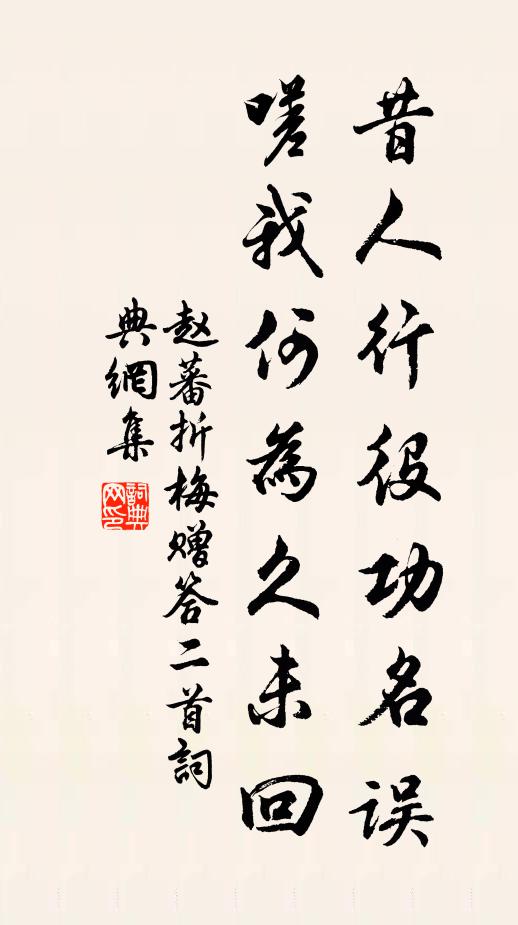 昔人行役功名误
嗟我何為久未回
赵蕃折梅赠答二首詞
典網集
詞典
网印